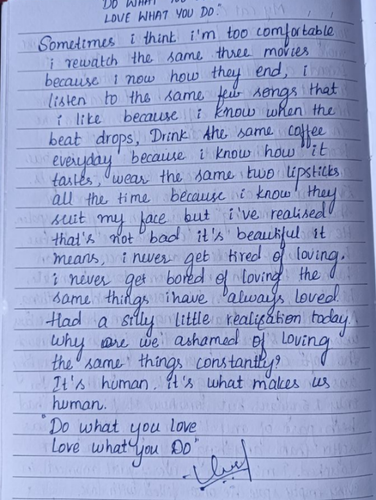 DO WHAT YOU
LOVE WHAT YOU DO."
Sometimes i think i'm too comfortable
i rewatch the same three movies
because i now how they end, i
listen to the same few songs that
i like because i know when the
beat drops, Drink the same coffee
everyday because i know how it
tastes, wear the same two lipsticks
all the time because i know they
suit my face but i've realised
that's not bad it's beautiful it
means, i never get tired of loving.
i never get bored of loving the
same things i have always loved
Had a silly little realisation today
why are we ashamed of loving
the same things constantly?
It's human. It's what makes us
human.
"Do what you love
Love what you Do"